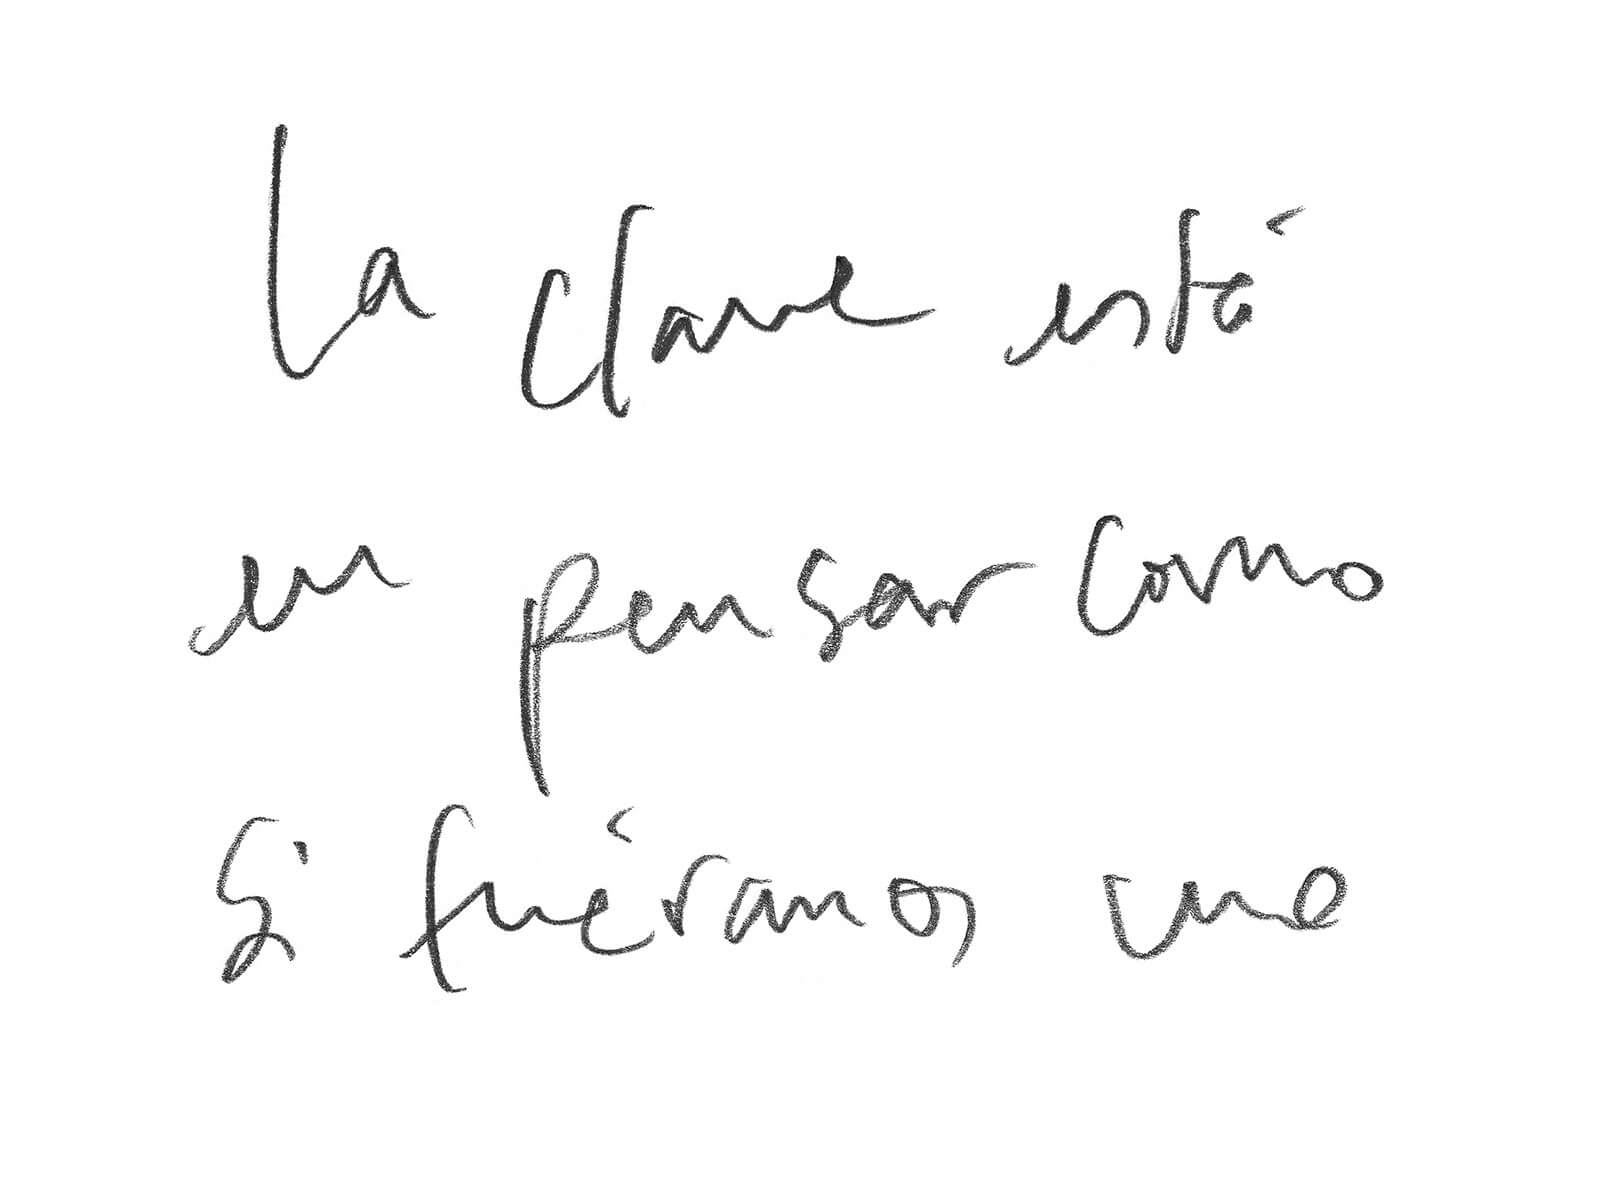 La clave está
en pensar como
si fuéramos uno